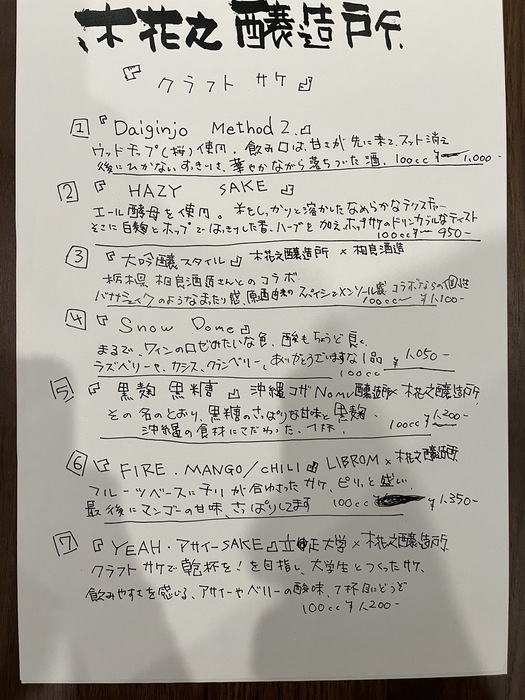 木花之醸造所
『クラフト サケ』
1 『Daiginjo Method 2.』
ウッドチップ(桜)使用。飲み口は、甘さが先に来て、スット消え
後にひかないすっきりさ、華やかながら落ちついた酒。100cc ¥ 1,000-
2 『HAZY SAKE』
エール酵母を使用。米をしっかりと溶かしたなめらかなテクスチャー
そこに白麹とホップではっきりした香、ハーブを加え、ホップサケのドリンカブルなテイスト
100cc ¥ 950-
3 『大吟醸スタイル』 木花之醸造所 × 相良酒造
栃木県 相良酒造さんとのコラボ
バナナシェイクのようなまったり感、原酒由来のスパイシーでメンソール感 コラボならではの
100cc ¥1,100-
4 『Snow Dome』
まるで、ワインのロゼみたいな色、酸もちょうど良く、
ラズベリーや、カシス、クランベリー、ありがとうございますな1品 ¥1,050-
100cc
5 『黒麹 黒糖 』 沖縄コザNomu醸造所× 木花之醸造所
その名のとおり、黒糖のさっぱりな甘味と黒麹、
沖縄の食材にこだわった、1杯、 100cc ¥1,200-
6 『FIRE . MANGO/CHILI 』 LIBROM × 木花之醸造所
フルーツベースにチリが合わさったサケ、ピリッと
最後にマンゴーの甘味、さっぱりしてます 100cc ¥1,350-
7 『YEAH・アサイーSAKE』立正大学 × 木花之醸造所
クラフトサケで乾杯を!を目指し、大学生とつくったサケ、
飲みやすさを感じる、アサイーやベリーの酸味、1杯目にどうぞ
100cc ¥1,200-